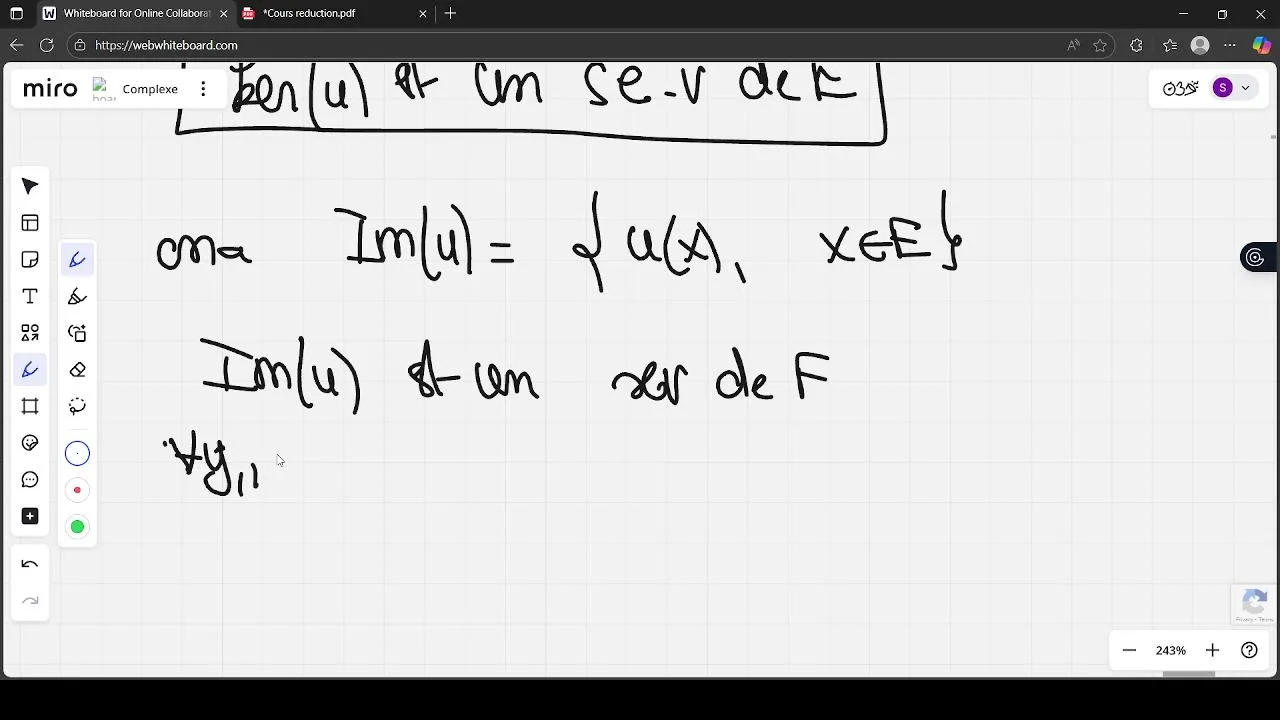 Whiteboard for Online Collaborat
*Cours reduction.pdf
https://webwhiteboard.com
miro
Complexe
S
ker(u) est un se.v de E
ona Im(u) = { u(x), x∈E }
Im(u) est un sev de F
∀y₁,
243%
Privacy - Terms